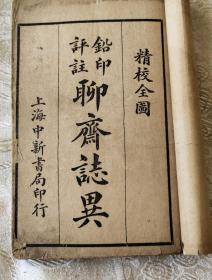 精校全圖
鉛印
評註
聊齋誌異
上海中新書局印行